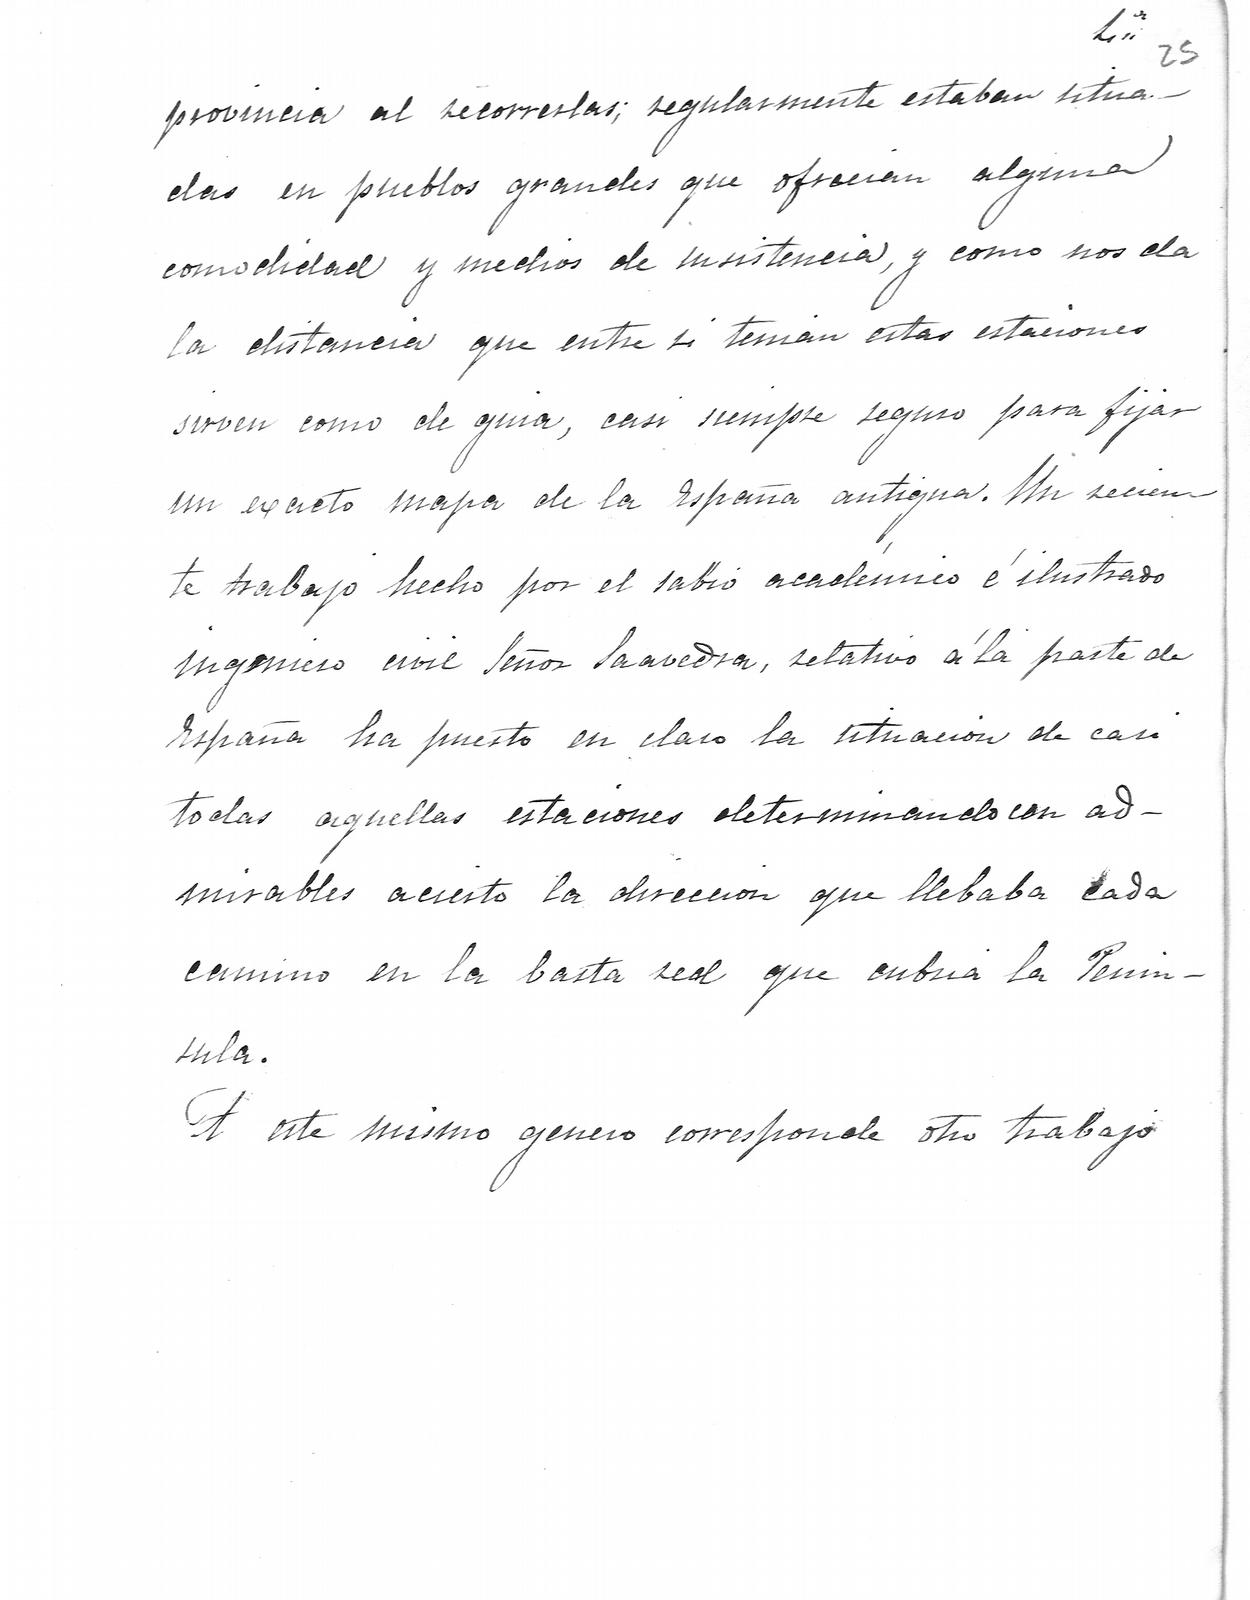 25
provincia al recorrerlas; regularmente estaban situa-
das en pueblos grandes que ofrecian alguna
comodidad y medios de insistencia, y como nos da
la distancia que entre si tenian estas estaciones
sirven como de guia, casi siempre seguro para fijar
un exacto mapa de la España antigua. Un recien-
te trabajo hecho por el sabio académico é ilustrado
ingeniero civil Señor Saavedra, relativo á la parte de
España ha puesto en claro la situacion de casi
todas aquellas estaciones determinando con ad-
mirables acierto la direccion que llebaba cada
camino en la basta red que cubria la Penin-
sula.
A este mismo genero corresponde otro trabajo